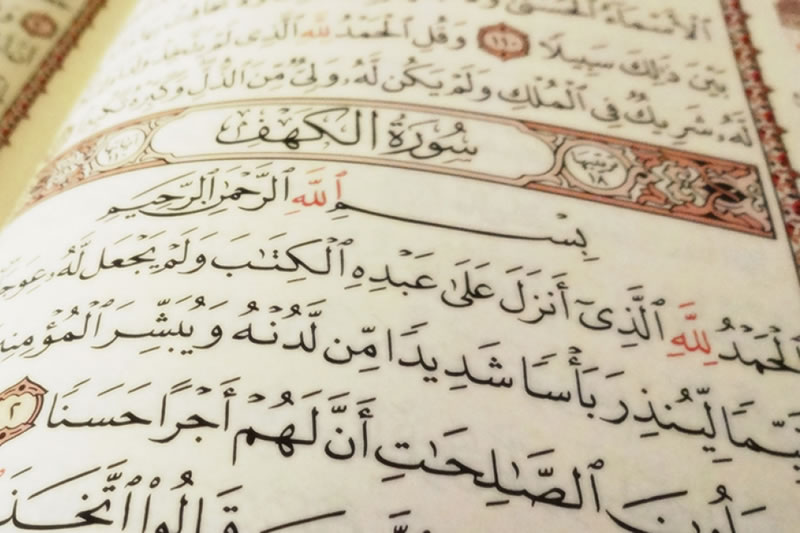 ٱلْأَسْمَآءُ ٱلْحُسْنَىٰ
بَيْنَ ذَٰلِكَ سَبِيلًا ١١٠ وَقُلِ ٱلْحَمْدُ لِلَّهِ ٱلَّذِى لَمْ
لَّهُۥ شَرِيكٌ فِى ٱلْمُلْكِ وَلَمْ يَكُن لَّهُۥ وَلِىٌّ مِّنَ ٱلذُّلِّ وَكَبِّرْهُ
سُورَةُ ٱلْكَهْفِ
ترتيبها ١٨
بِسْمِ ٱللَّهِ ٱلرَّحْمَٰنِ ٱلرَّحِيمِ
ٱلْحَمْدُ لِلَّهِ ٱلَّذِىٓ أَنزَلَ عَلَىٰ عَبْدِهِ ٱلْكِتَٰبَ وَلَمْ يَجْعَل لَّهُۥ
لِّيُنذِرَ بَأْسًا شَدِيدًا مِّن لَّدُنْهُ وَيُبَشِّرَ
ٱلصَّٰلِحَٰتِ أَنَّ لَهُمْ أَجْرًا حَسَنًا ٢
قَالُوا۟